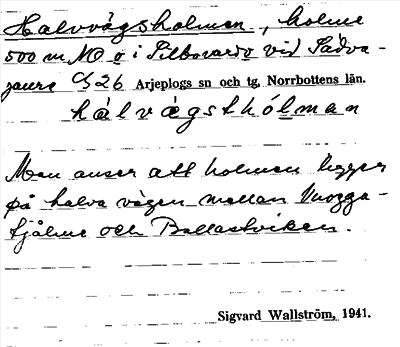 Halvvägsholmen, holme
500 m NO o i Silbovardo vid Sädva-
jaure C526 Arjeplogs sn och tg, Norrbottens län.
hálvägsthólman
Man anser att holmen ligger
på halva vägen mellan Vuogga-
tjålme och Ballastviken.
Sigvard Wallström, 1941.